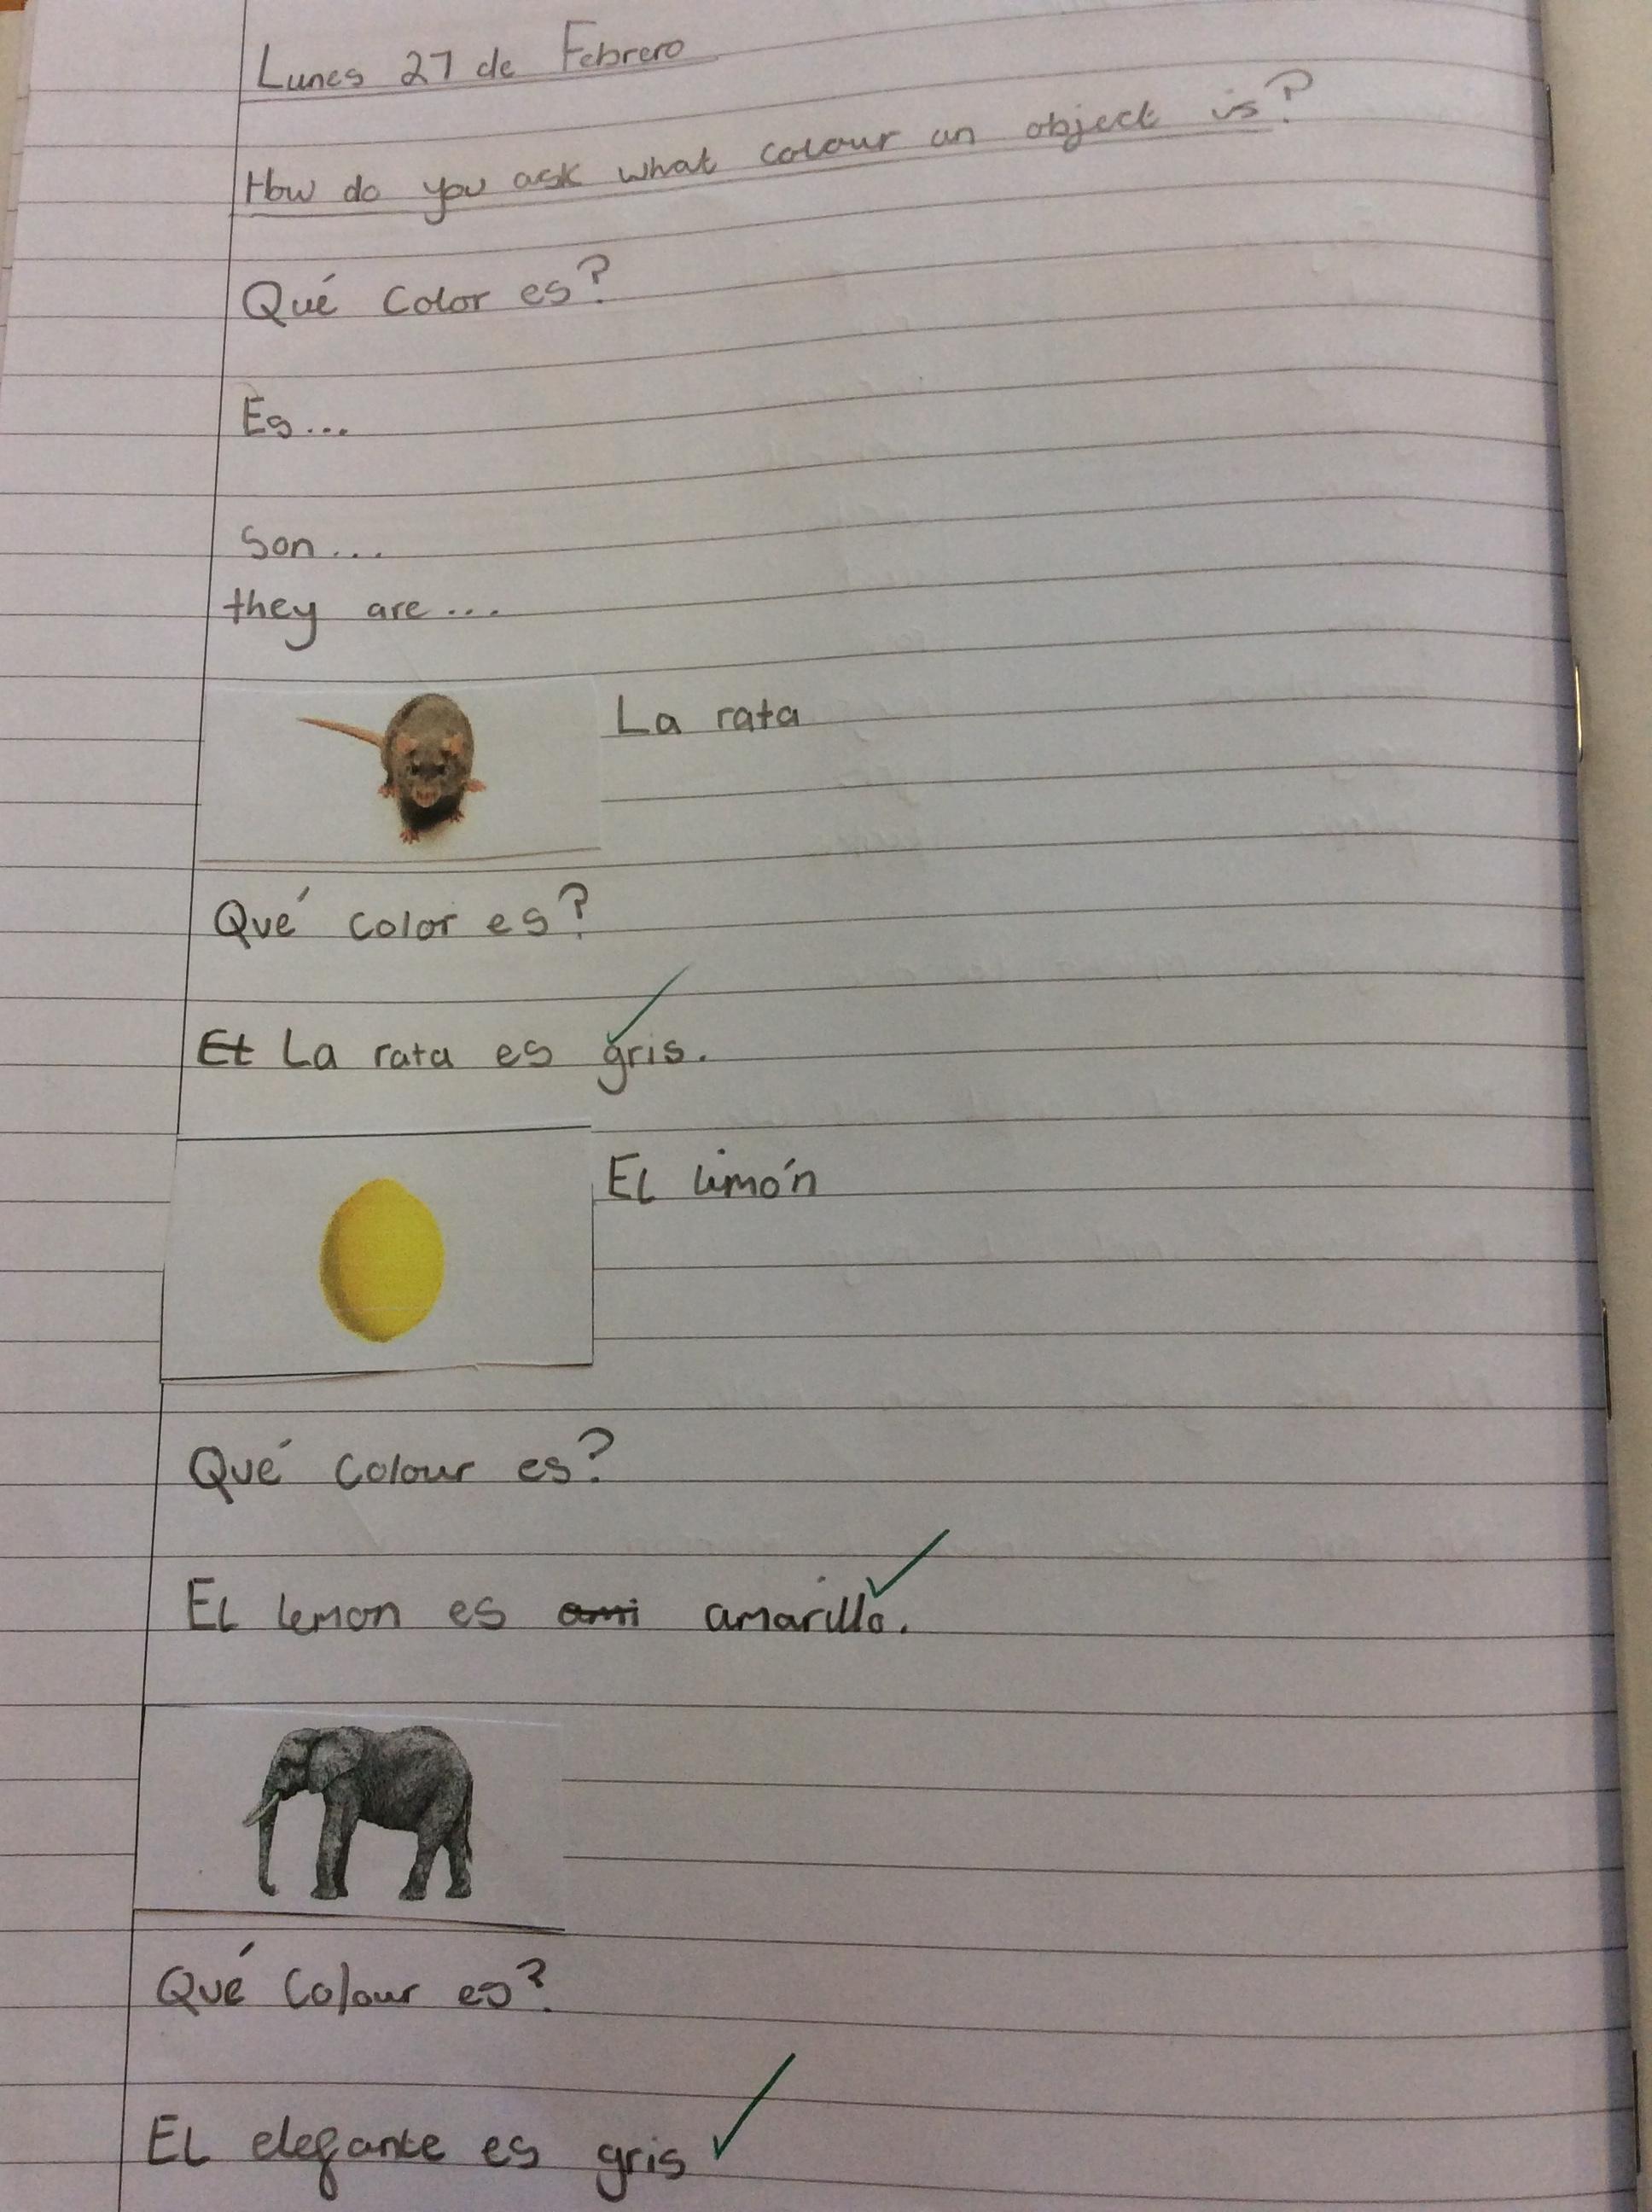 Lunes 27 de Febrero
How do you ask what colour an object is?
Qué color es?
Es...
Son...
they are...
La rata
Qué color es?
Et La rata es gris.
El limón
Qué colour es?
El lemon es ami amarillo.
Qué colour es?
El elefante es gris